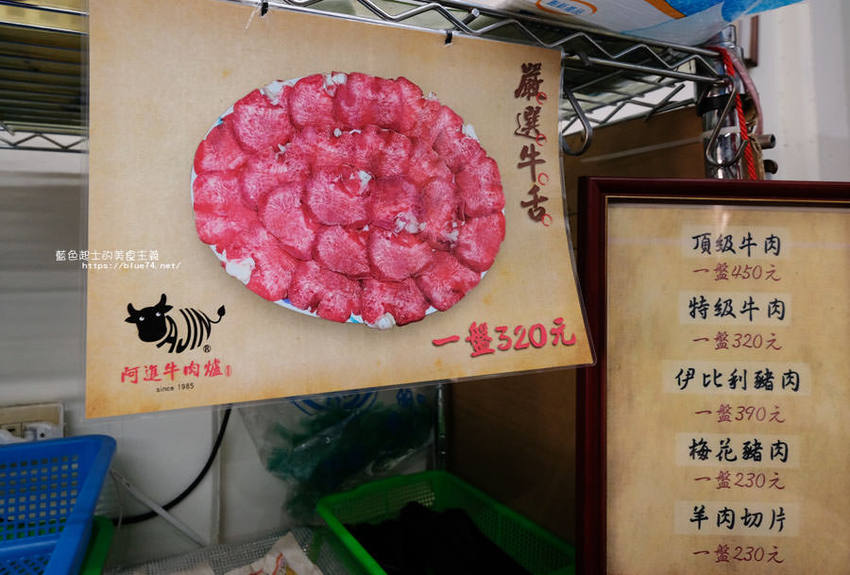 嚴選牛舌
一盤320元
藍色起士的美食主義
https://blue74.net/
AJIN
®
阿進牛肉爐
since 1985
頂級牛肉
一盤450元
特級牛肉
一盤320元
伊比利豬肉
一盤390元
梅花豬肉
一盤230元
羊肉切片
一盤230元